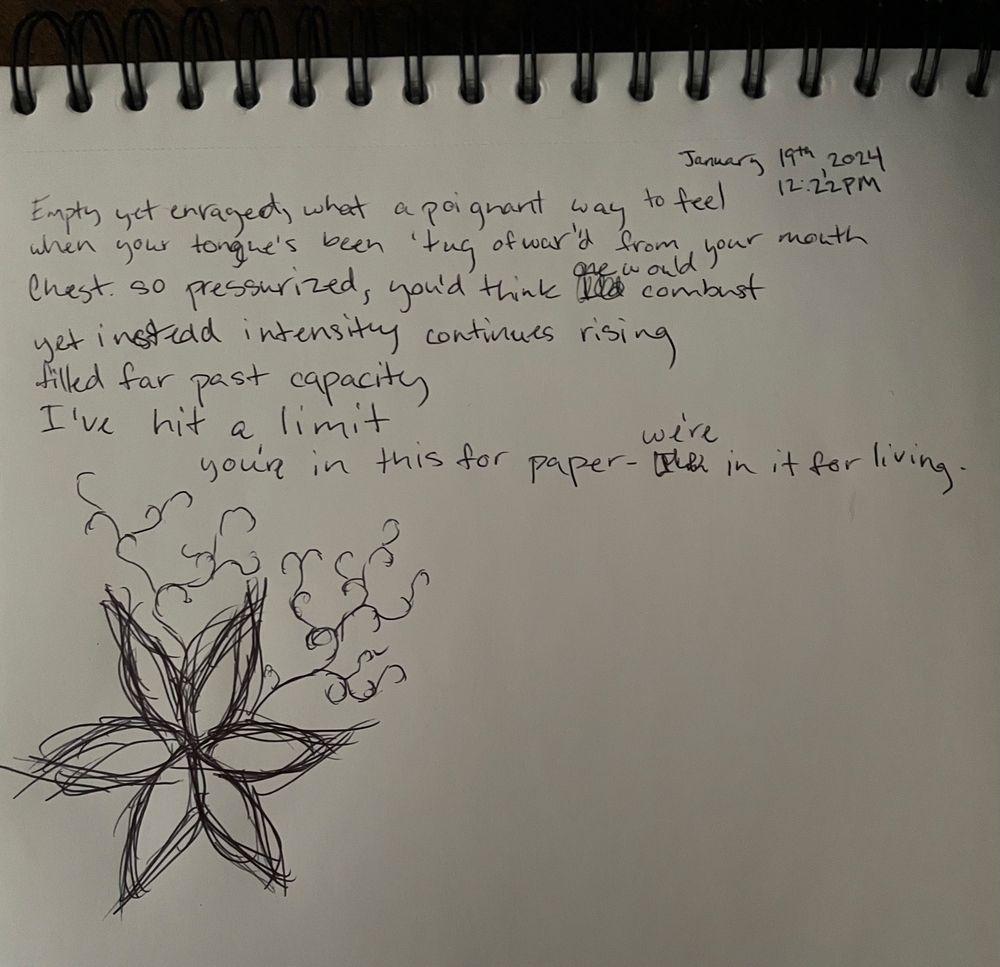 January 19th, 2024
12:22PM
Empty yet enraged, what a poignant way to feel
when your tongue's been 'tug of war'd from your mouth
Chest. so pressurized, you'd think one would combust
yet instead intensity continues rising
filled far past capacity
I've hit a limit
you're in this for paper- we're in it for living.